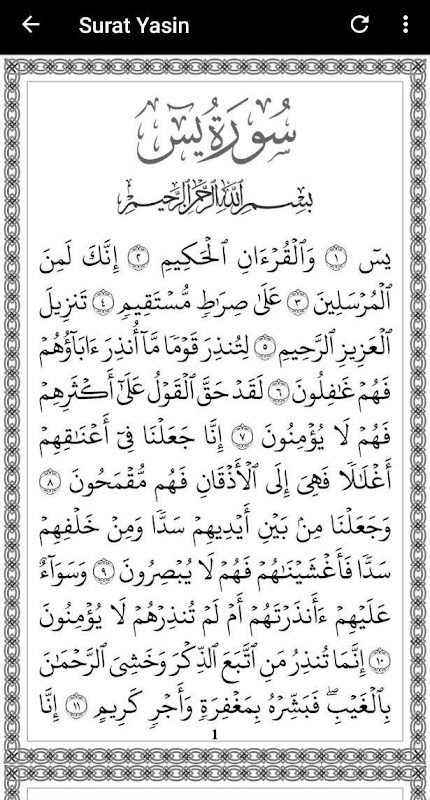 Surat Yasin
سُورَةُ يسٓ
بِسْمِ ٱللَّهِ ٱلرَّحْمَٰنِ ٱلرَّحِيمِ
يسٓ ١ وَٱلْقُرْءَانِ ٱلْحَكِيمِ ٢ إِنَّكَ لَمِنَ
ٱلْمُرْسَلِينَ ٣ عَلَىٰ صِرَٰطٍ مُّسْتَقِيمٍ ٤ تَنزِيلَ
ٱلْعَزِيزِ ٱلرَّحِيمِ ٥ لِتُنذِرَ قَوْمًا مَّآ أُنذِرَ ءَابَآؤُهُمْ
فَهُمْ غَٰفِلُونَ ٦ لَقَدْ حَقَّ ٱلْقَوْلُ عَلَىٰٓ أَكْثَرِهِمْ
فَهُمْ لَا يُؤْمِنُونَ ٧ إِنَّا جَعَلْنَا فِىٓ أَعْنَٰقِهِمْ
أَغْلَٰلًا فَهِىَ إِلَى ٱلْأَذْقَانِ فَهُم مُّقْمَحُونَ ٨
وَجَعَلْنَا مِنۢ بَيْنِ أَيْدِيهِمْ سَدًّا وَمِنْ خَلْفِهِمْ
سَدًّا فَأَغْشَيْنَٰهُمْ فَهُمْ لَا يُبْصِرُونَ ٩ وَسَوَآءٌ
عَلَيْهِمْ ءَأَنذَرْتَهُمْ أَمْ لَمْ تُنذِرْهُمْ لَا يُؤْمِنُونَ
١٠ إِنَّمَا تُنذِرُ مَنِ ٱتَّبَعَ ٱلذِّكْرَ وَخَشِىَ ٱلرَّحْمَٰنَ
بِٱلْغَيْبِ ۖ فَبَشِّرْهُ بِمَغْفِرَةٍ وَأَجْرٍ كَرِيمٍ ١١ إِنَّا
1